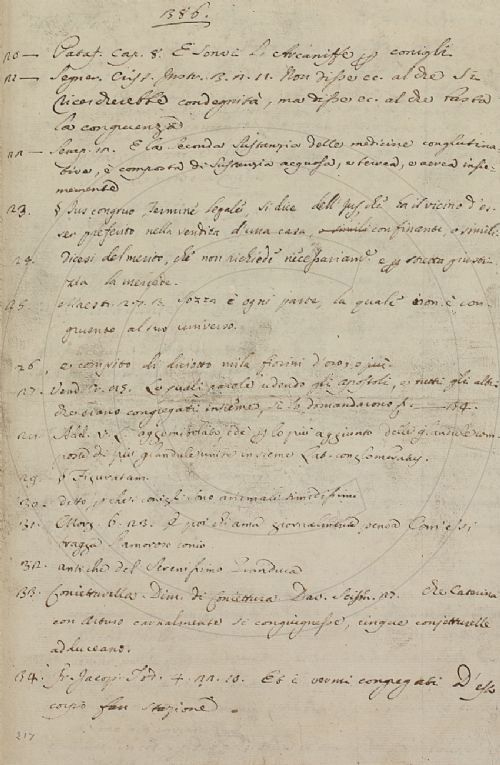 386.
20 — Pataf. Cap. 8. E conigli
21 — Segner. Crist. Instr. 3. 11. 11. Non disse ec. al che si
ricerderebbe condegnità, ma disse ec. al che basta
la congruenza
22 — 10. E la seconda sustanzia delle medicine conglutina-
tive, è composta di sustanzia acquosa, e terrea, e aerea insie-
memente
23. § Jus congruo, Termine legale, si dice dell' Jus, che ha il vicino d'es-
ser preferito nella vendita d'una casa, confinante, o simili
24. dicesi del merito, che non richiede necessariam.e e p stretta giusti-
zia la mercede.
25. Maestr. 2. 7. 13. Sozza è ogni parte, la quale non è con-
gruente al suo universo.
26. o compito di diciotto mila fiorini d'oro, o più.
27. Vend. Le quali parole udendo gli Apostoli, e tutti gli altri
che erano congregati insieme, si lo domandarono p. — 34.
28. v. L. agglomerato, che p lo più aggiunto delle glandule com-
poste di più glandule unite insieme Lat. conglomeratus.
29. § Figuratam.
30. detto, p che i conigli sono animali timidissimi
31. Morg. 6. 23. E poi chiama
l'amoroso conio.
32. antiche del Serenissimo Granduca
33. Conietturella. Dim. di Coniettura Dav. Scism. 27. che Caterina
con Arturo carnalmente si congiugnesse, cinque conjetturelle
adducevano.
34. Fr. Jacop. Tod. 4. 32. 10. Et i vermi congregati D'esso
corpo fan stazione.
217